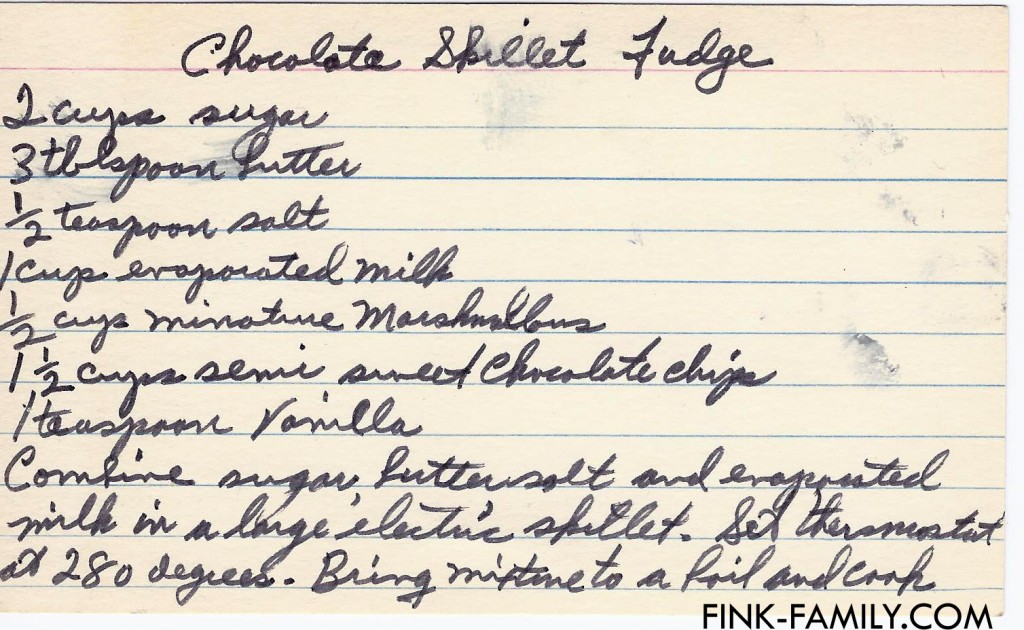 Chocolate Skillet Fudge
2 cups sugar
3 tblspoon butter
1/2 teaspoon salt
1 cup evaporated milk
1/2 cup minature Marshmallows
1 1/2 cups semi sweet chocolate chips
1 teaspoon Vanilla
Combine sugar butter salt and evaporated
milk in a large electric skillet. Set thermostat
at 280 degrees. Bring mixture to a boil and cook
FINK-FAMILY.COM